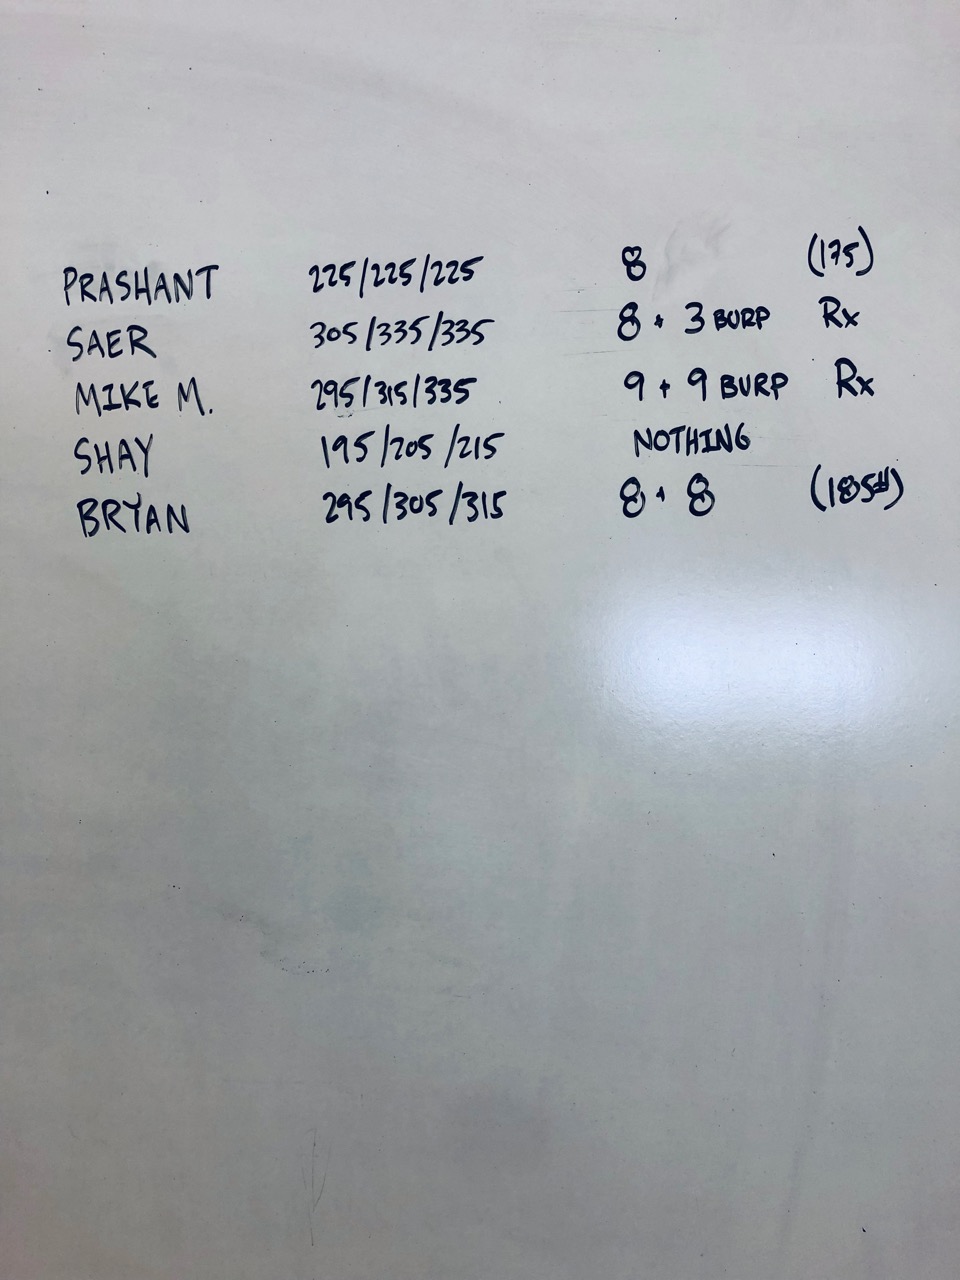 PRASHANT 225/225/225 8 (175)
SAER 305/335/335 8 + 3 BURP Rx
MIKE M. 295/315/335 9 + 9 BURP Rx
SHAY 195/205/215 NOTHING
BRYAN 295/305/315 8 + 8 (185#)